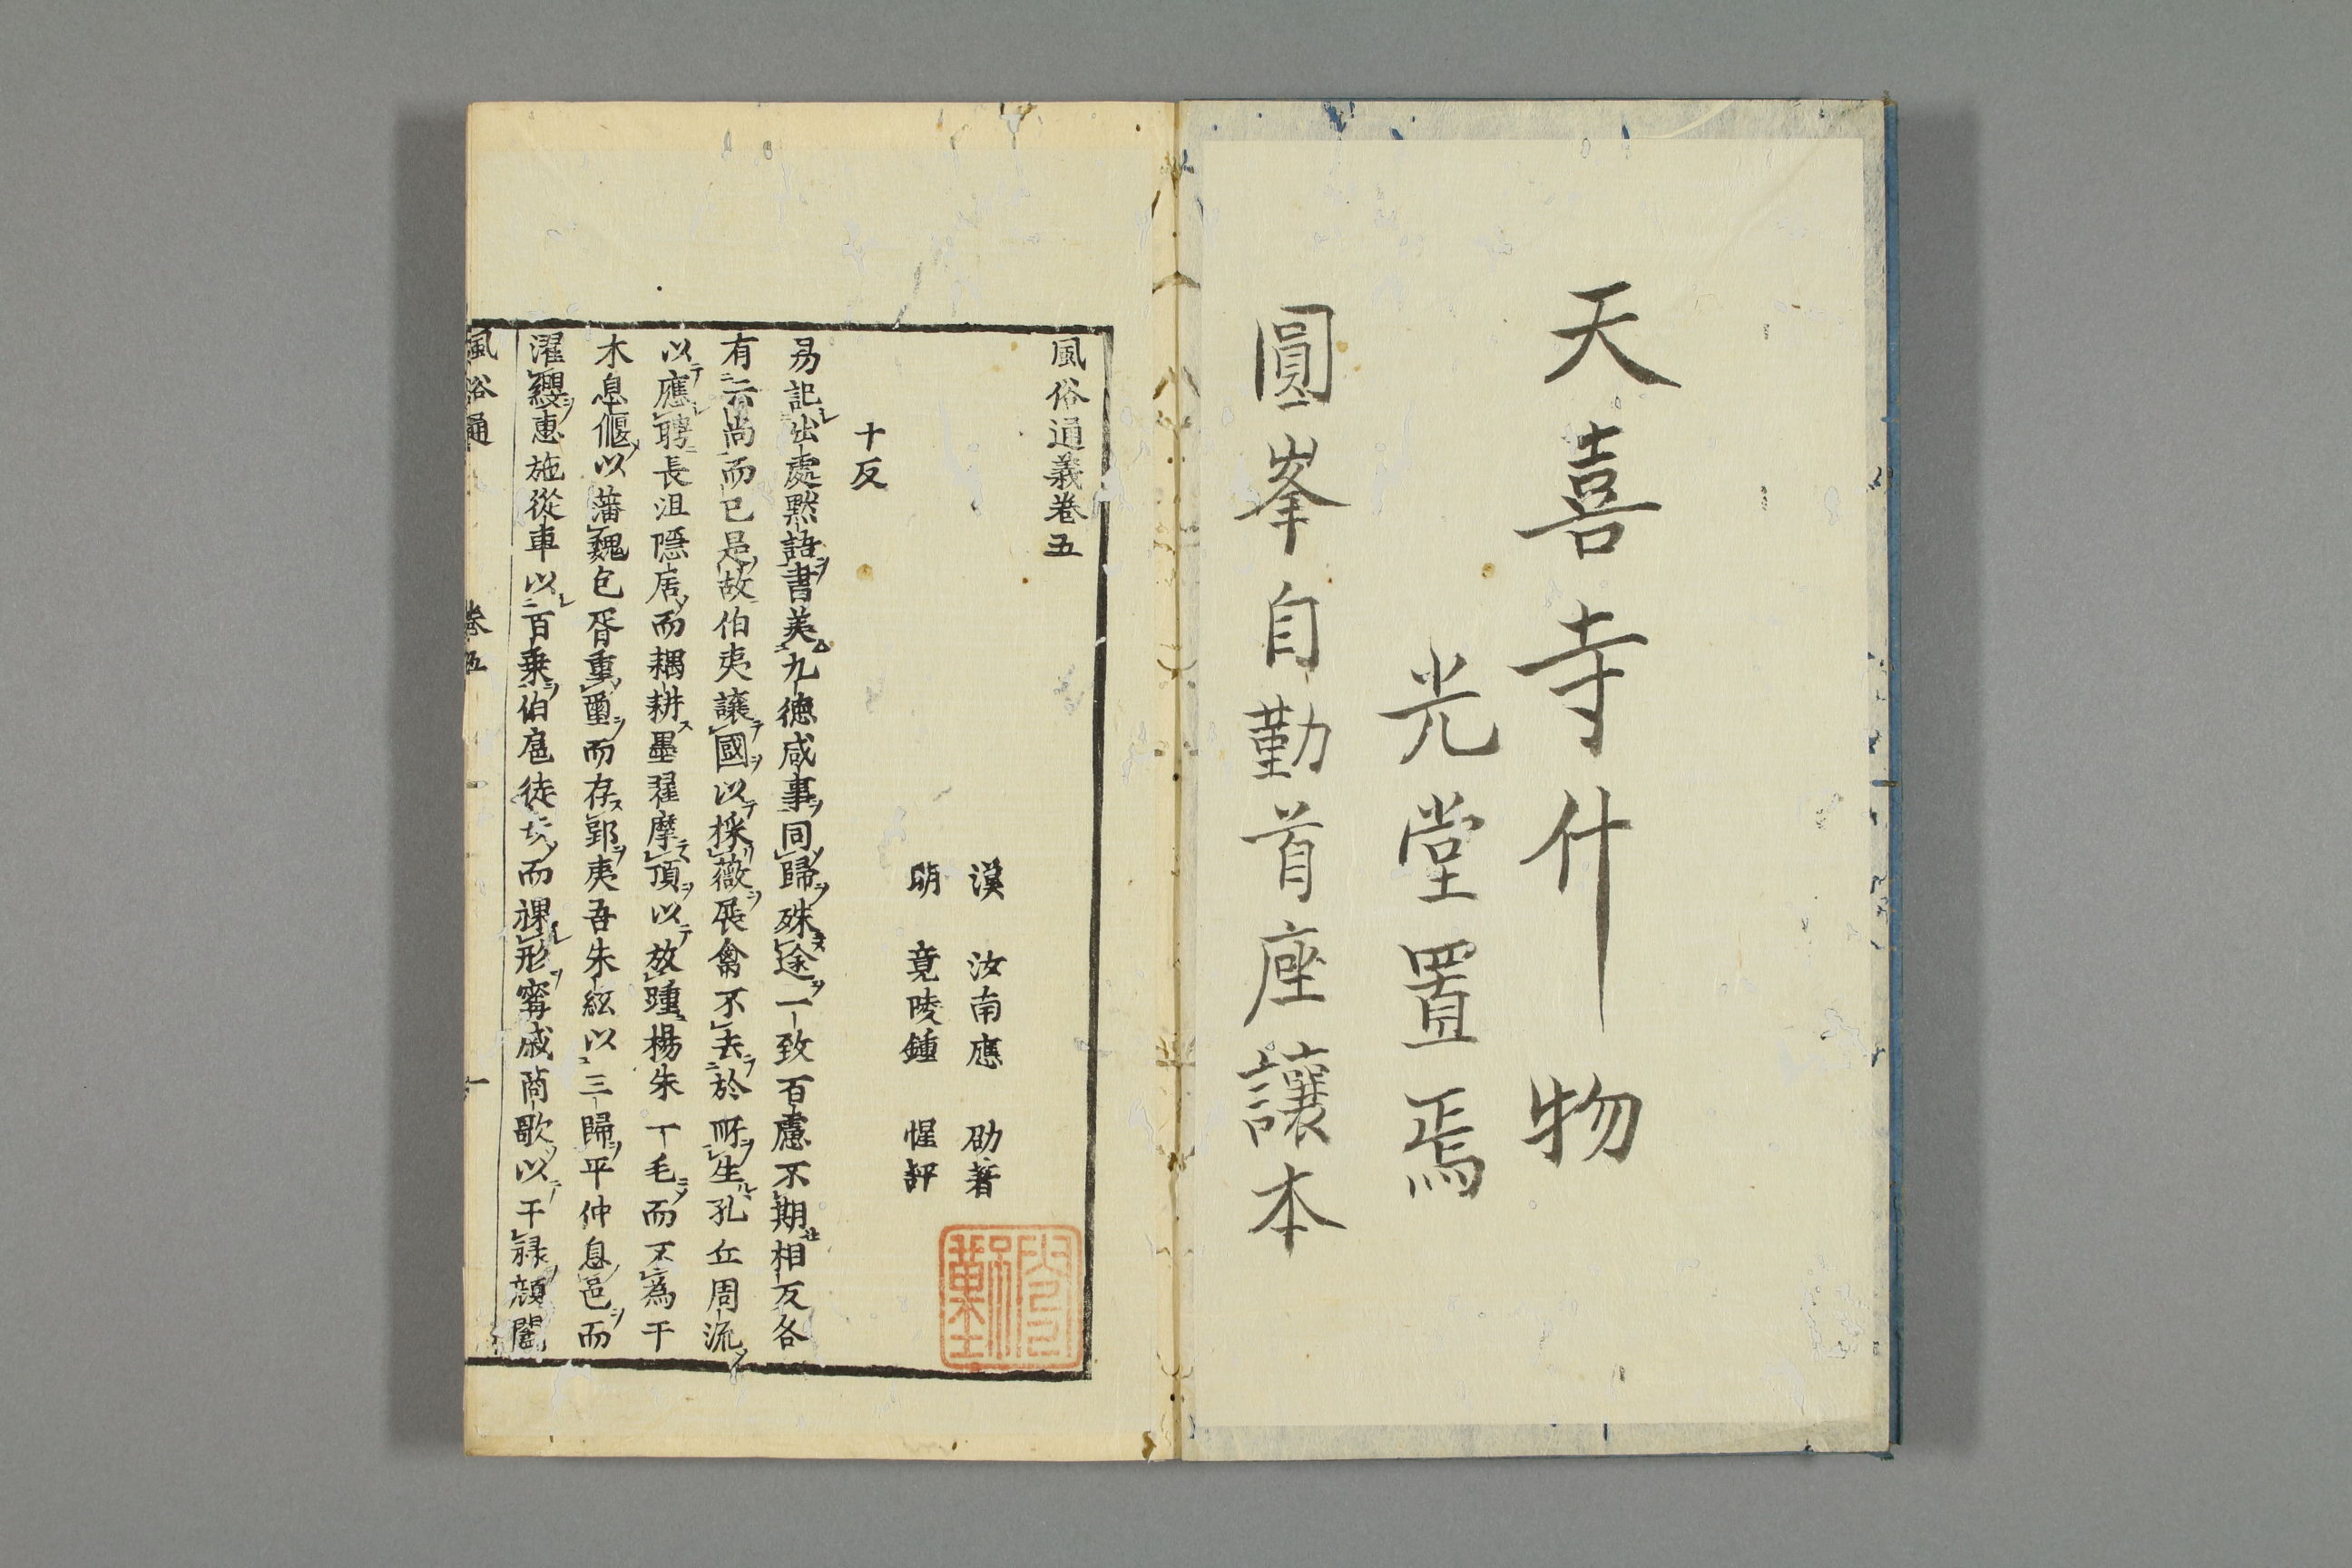 天喜寺什物
光堂置焉
圓峯自勤首座讓本
風俗通義卷五
漢　汝南應　劭著
明　竟陵鍾　惺評
十反
易記出處黙語書美九德咸事同歸殊途一致百慮不期相反各
有云尚而已是故伯夷讓國以採薇展禽不去於所生孔丘周流
以應聘長沮隱居而耦耕墨翟摩頂以放踵楊朱一毛而不為干
木息偃以藩魏包胥重蠒而存郢夷吾朱紘以三歸平仲息邑而
濯纓惠施從車以百乗伯扈徒步而裸形寗戚商歌以干禄顔闔
風俗通　卷五　一